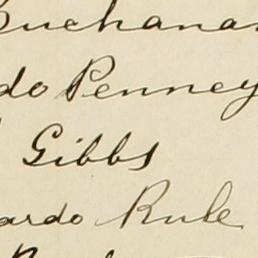 Buchanan
do Penney
Gibbs
ardo Rule